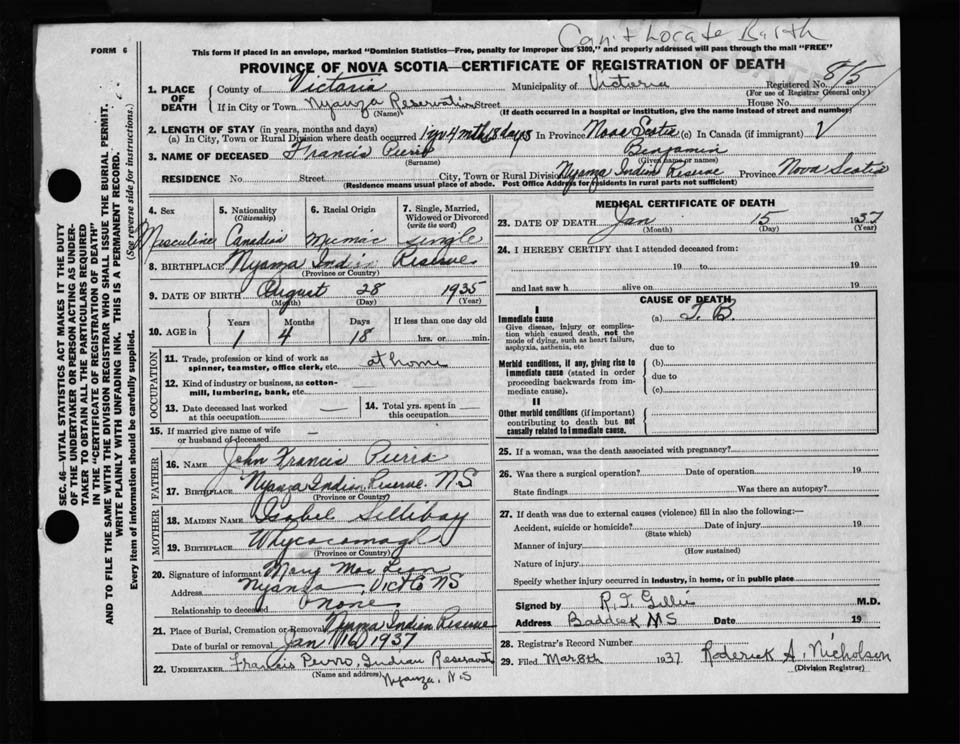 Can't Locate Birth
FORM 6
This form if placed in an envelope, marked "Dominion Statistics—Free, penalty for improper use $300," and properly addressed will pass through the mail "FREE"
PROVINCE OF NOVA SCOTIA—CERTIFICATE OF REGISTRATION OF DEATH
1. PLACE OF DEATH
County of Victoria Municipality of Victoria Registered No. 815
(For use of Registrar General only)
If in City or Town Nyanza Reservation Street House No.
(Name) (If death occurred in a hospital or institution, give the name instead of street and number)
2. LENGTH OF STAY (in years, months and days)
(a) In City, Town or Rural Division where death occurred 1 yr 4 mth 18 days In Province Nova Scotia (c) In Canada (if immigrant)
3. NAME OF DECEASED Francis Pierro Benjamin
(Surname) (Given name or names)
RESIDENCE No. Street City, Town or Rural Division Nyanza Indian Reserve Province Nova Scotia
(Residence means usual place of abode. Post Office Address for residents in rural parts not sufficient)
4. Sex 5. Nationality (Citizenship) 6. Racial Origin 7. Single, Married, Widowed or Divorced (write the word)
Masculine Canadian Micmac Single
8. BIRTHPLACE Nyanza Indian Reserve
(Province or Country)
9. DATE OF BIRTH August 28 1935
(Month) (Day) (Year)
10. AGE in Years Months Days If less than one day old
1 4 18 hrs. or min.
OCCUPATION
11. Trade, profession or kind of work as spinner, teamster, office clerk, etc. at home
12. Kind of industry or business, as cotton-mill, lumbering, bank, etc. —
13. Date deceased last worked at this occupation — 14. Total yrs. spent in this occupation —
15. If married give name of wife or husband of deceased —
FATHER
16. NAME John Francis Pierro
17. BIRTHPLACE Nyanza Indian Reserve. N.S.
(Province or Country)
MOTHER
18. MAIDEN NAME Isabel Sillibay
19. BIRTHPLACE Whycocomagh
(Province or Country)
20. Signature of informant Mary Mac Lean
Address Nyanza, Vict Co NS
Relationship to deceased none
21. Place of Burial, Cremation or Removal Nyanza Indian Reserve
Date of burial or removal Jan 16 1937
22. UNDERTAKER Francis Pierro, Indian Reservation
(Name and address) Nyanza, N.S
MEDICAL CERTIFICATE OF DEATH
23. DATE OF DEATH Jan 15 1937
(Month) (Day) (Year)
24. I HEREBY CERTIFY that I attended deceased from:
19 to 19
and last saw h alive on 19
CAUSE OF DEATH
I
Immediate cause (a) T. B.
Give disease, injury or complication which caused death, not the mode of dying, such as heart failure, asphyxia, asthenia, etc.
due to
Morbid conditions, if any, giving rise to immediate cause (stated in order proceeding backwards from immediate cause).
(b)
due to
(c)
II
Other morbid conditions (if important) contributing to death but not causally related to immediate cause.
25. If a woman, was the death associated with pregnancy?
26. Was there a surgical operation? Date of operation 19
State findings Was there an autopsy?
27. If death was due to external causes (violence) fill in also the following:—
Accident, suicide or homicide? Date of injury 19
(State which)
Manner of injury
(How sustained)
Nature of injury
Specify whether injury occurred in industry, in home, or in public place
Signed by R. T. Gillis M.D.
Address Baddeck NS Date 19
28. Registrar's Record Number
29. Filed Mar 8th 1937 Roderick A. Nicholson
(Division Registrar)
SEC. 46—VITAL STATISTICS ACT MAKES IT THE DUTY
OF THE UNDERTAKER OR PERSON ACTING AS UNDER-
TAKER TO OBTAIN ALL THE PARTICULARS REQUIRED
IN THE "CERTIFICATE OF REGISTRATION OF DEATH"
AND TO FILE THE SAME WITH THE DIVISION REGISTRAR WHO SHALL ISSUE THE BURIAL PERMIT.
WRITE PLAINLY WITH UNFADING INK. THIS IS A PERMANENT RECORD.
Every item of information should be carefully supplied. (See reverse side for instructions.)